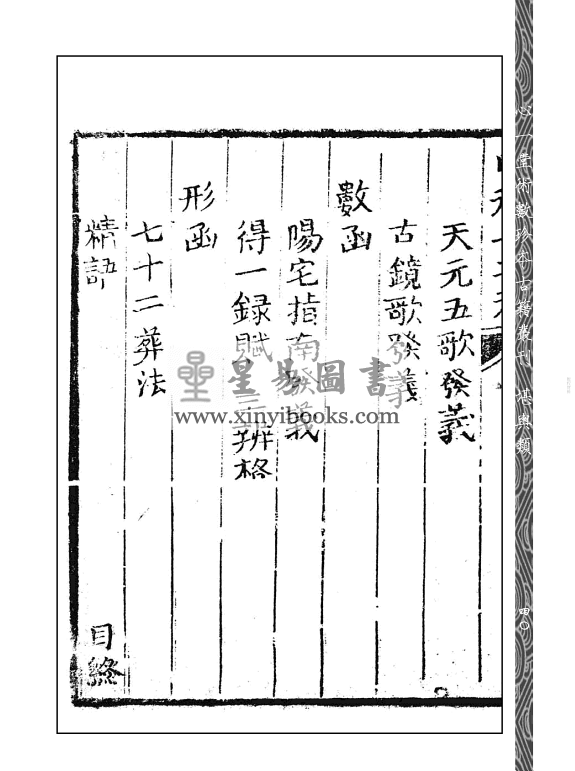 天元五歌發義
古鏡歌發義
數函
陽宅指南發義
得一録賦
辨格
形函
七十二葬法
精語
目終
星易圖書
www.xinyibooks.com
心一堂術數珍本古籍叢刊 堪輿類
四〇